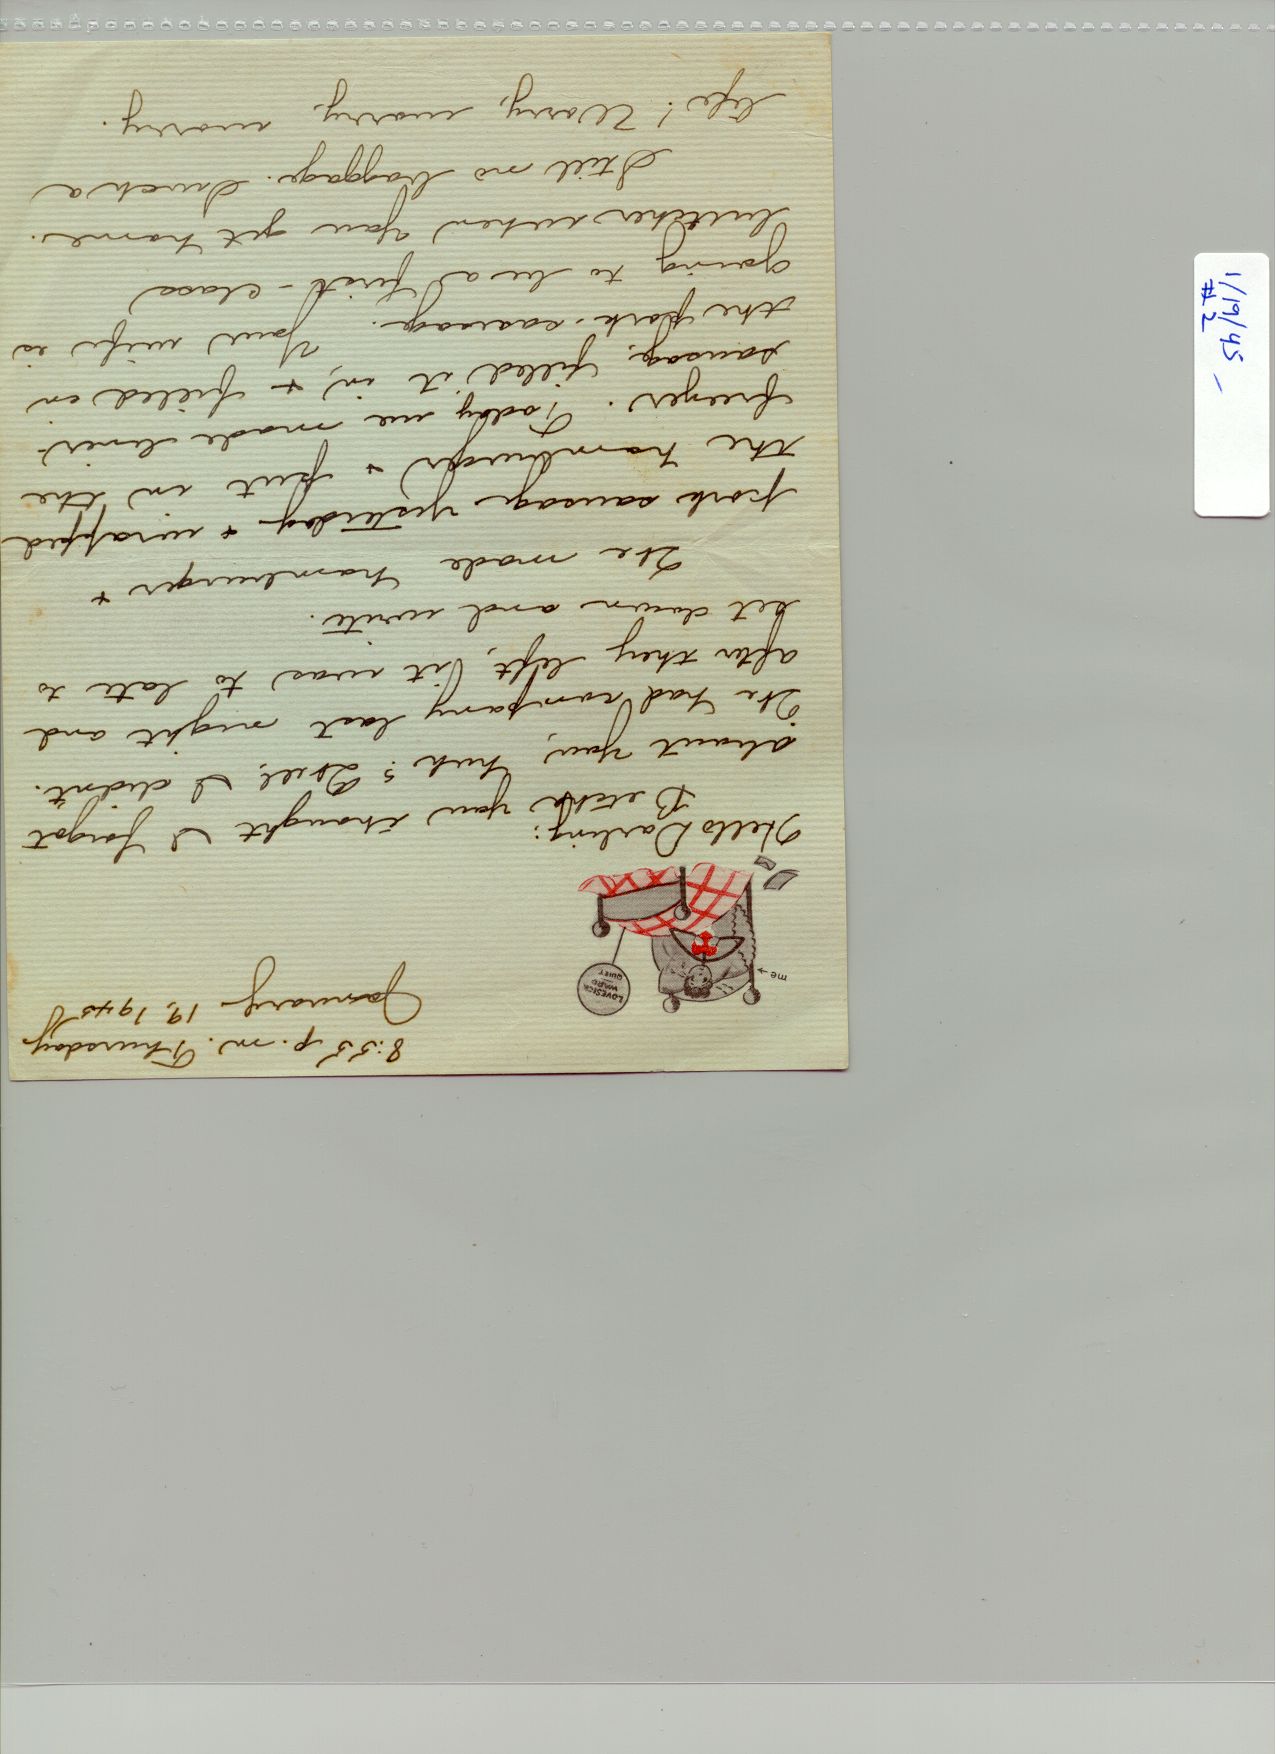 8:55 p.m. Thursday
January 19, 1945
me →
LOVESICK
WARD
QUIET
Hello Darling:
Betcha you thought I forgot
about you, huh? Well, I didn't.
We had company last night and
after they left, it was to late to
set down and write.
We made hamburger +
pork sausage yesterday + wrapped
the hamburger + put in the
freezer. Today we made liver-
sausage, filled it in, + filled in
the pork-sausage. Your wife is
going to be a first-class
butcher when you get home.
Still no baggage. Such a
life! Worry, worry, worry.
1/19/45 -
#2